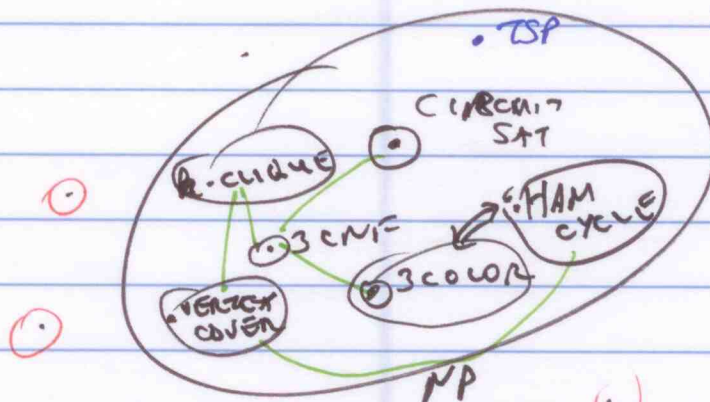 TSP
CIRCUIT
SAT
k-CLIQUE
HAM
CYCLE
3CNF
3COLOR
VERTEX
COVER
NP